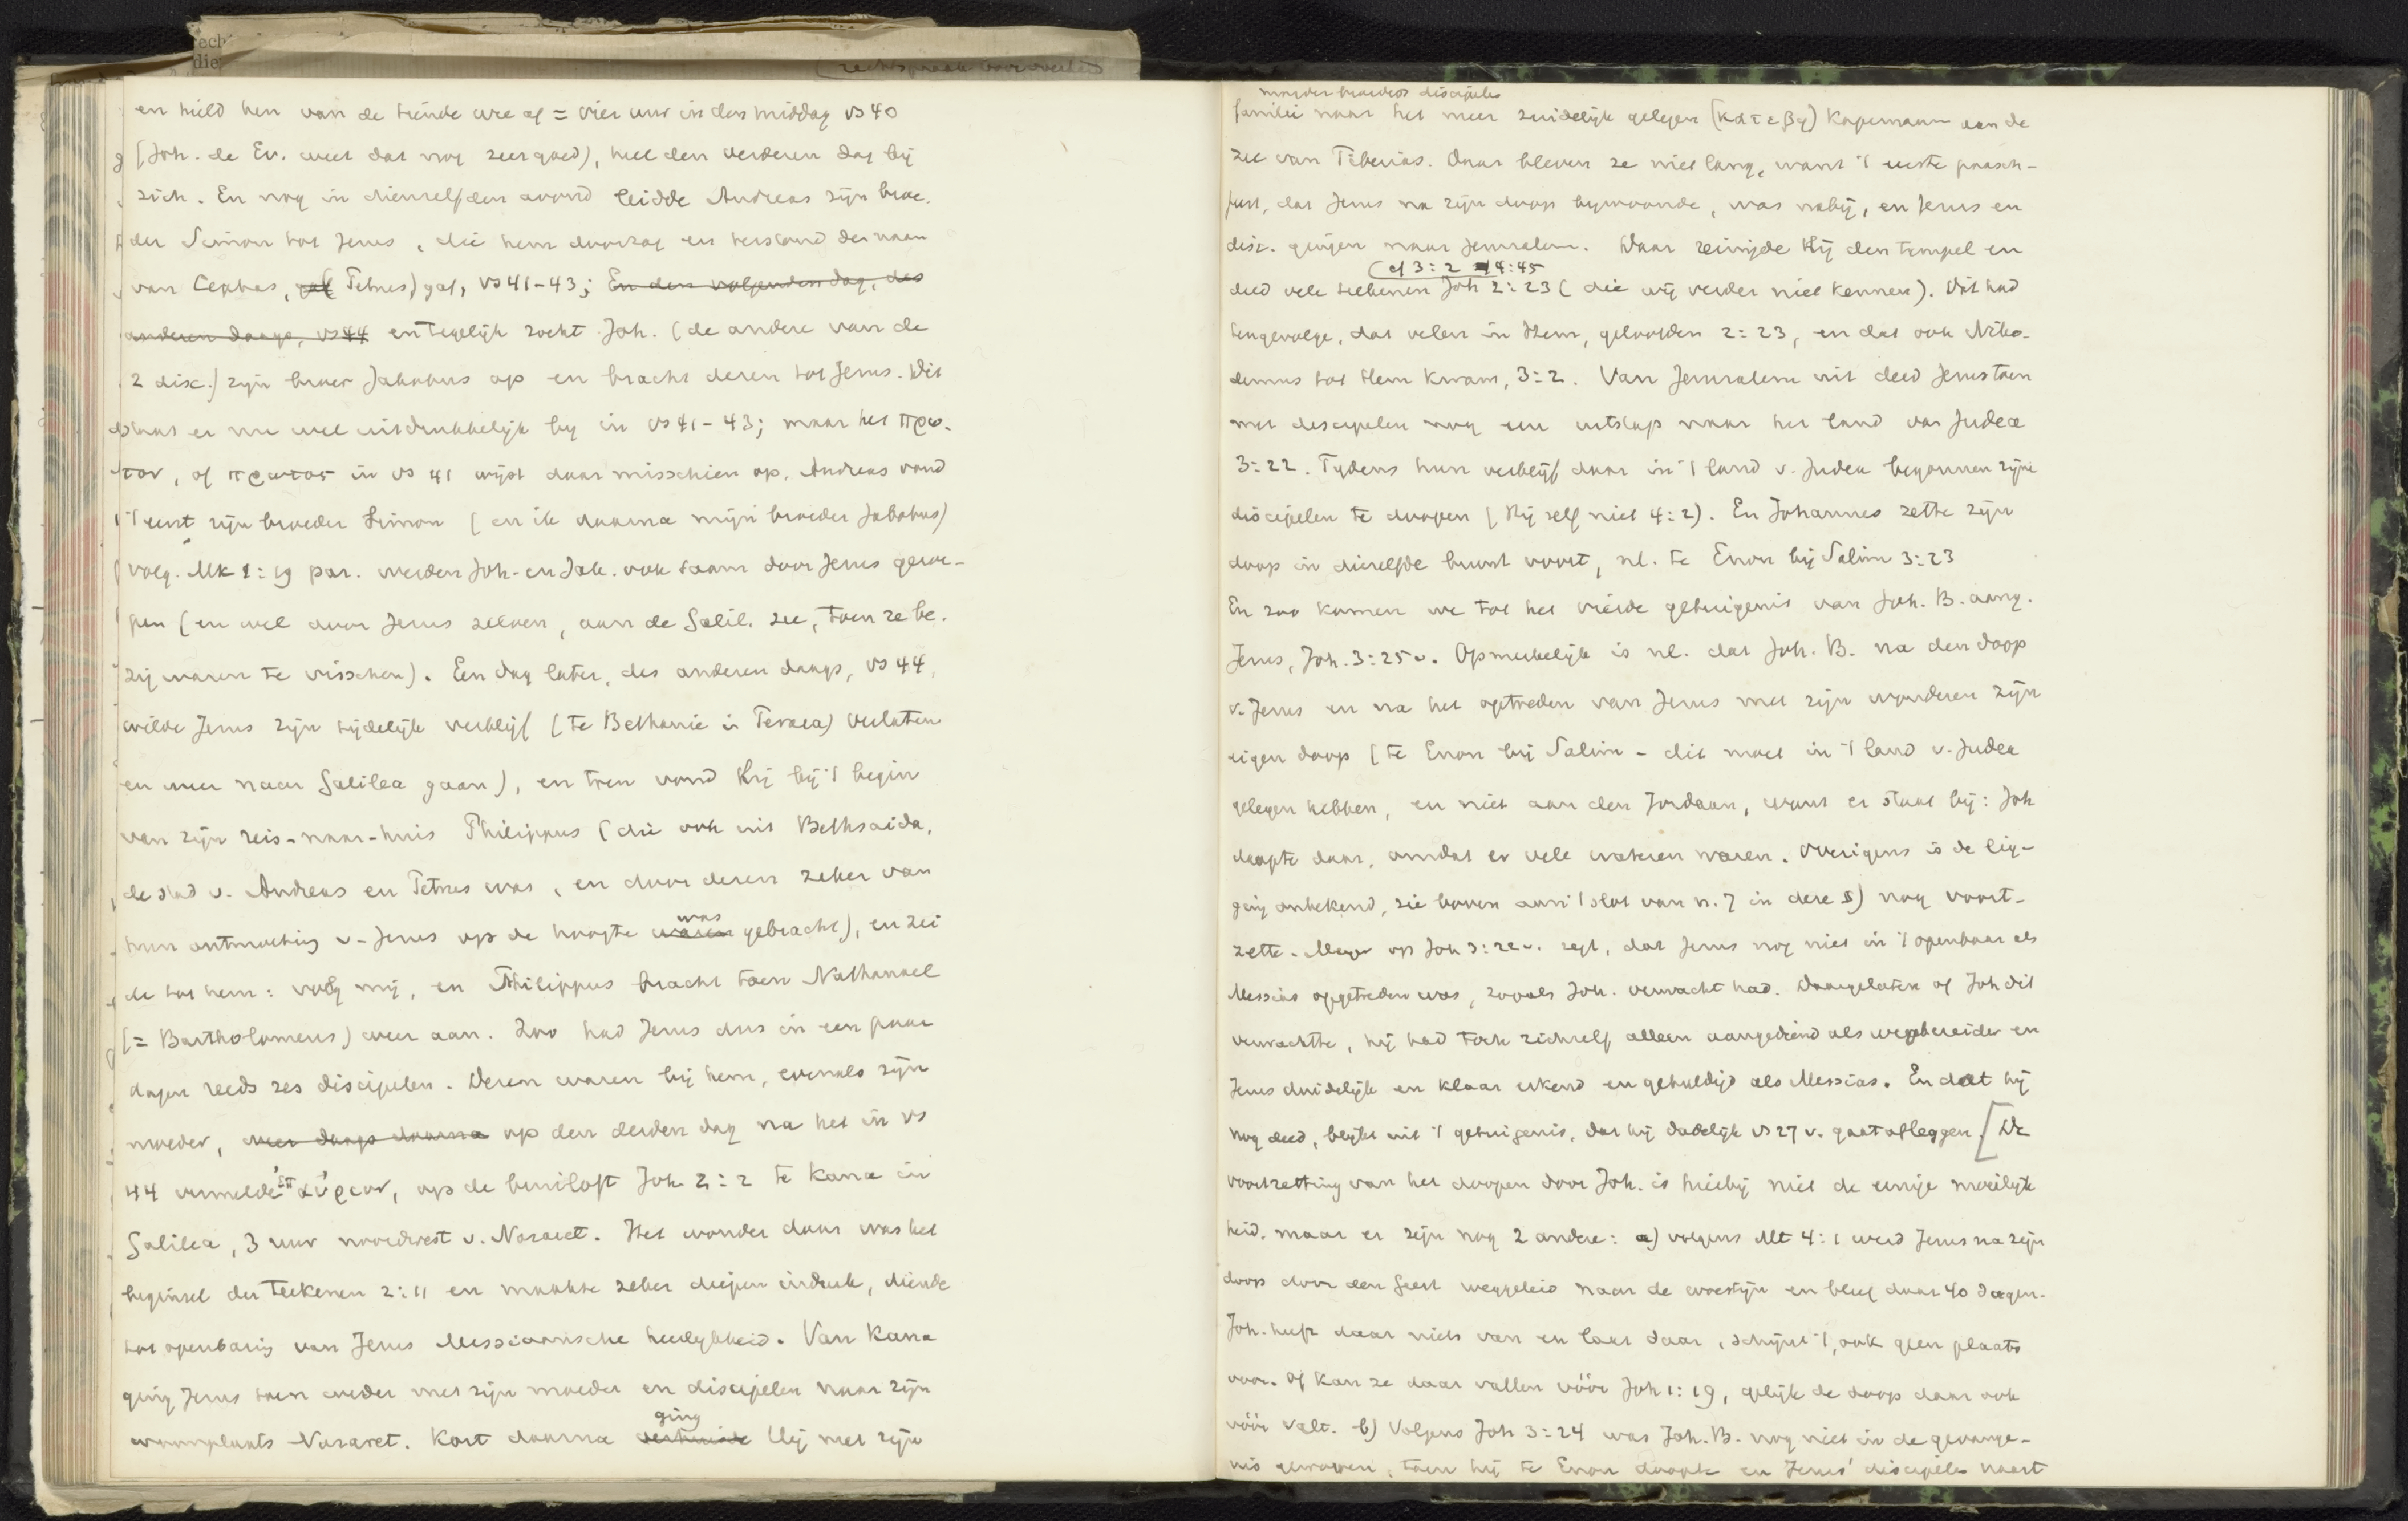 en hield hen van de tiende ure af = vier uur in den middag vs 40
(Joh. de Ev. weet dat nog zeer goed), heel den verderen dag bij
zich. En nog in dienzelfden avond leidde Andreas zijn broe-
der Simon tot Jezus, die hem doorzag en terstond den naam
van Cephas, (Petrus) gaf, vs 41-43; En den volgenden dag, des
anderen daags, vs 44 en tegelijk zocht Joh. (de andere van de
2 disc.) zijn broer Jakobus op en bracht dezen tot Jezus. Dit
staat er nu wel uitdrukkelijk bij in vs 41-43; maar het πρω-
τον, of πρωτος in vs 41 wijst daar misschien op. Andreas vond
't eerst zijn broeder Simon (en ik daarna mijn broeder Jakobus)
volg. Mk 1:19 par. werden Joh. en Jak. ook saam door Jezus geroe-
pen (en wel door Jezus zelven, aan de Galil. zee, toen ze be-
zig waren te visschen). Een dag later, des anderen daags, vs 44,
wilde Jezus zijn tijdelijk verblijf (te Bethanie in Peraea) verlaten
en weer naar Galilea gaan), en toen vond Hij bij 't begin
van zijn reis-naar-huis Philippus (die ook uit Bethsaida,
de stad v. Andreas en Petrus was, en door dezen zeker van
hun ontmoeting v. Jezus op de hoogte waren was gebracht), en zei
de tot hem: volg mij, en Philippus bracht toen Nathanael
(= Bartholomeus) weer aan. Zoo had Jezus dus in een paar
dagen reeds zes discipelen. Dezen waren bij hem, evenals zijn
moeder, op den derden dag na het in vs
44 vermelde ἐπαύριον, op de bruiloft Joh. 2:2 te Kana in
Galilea, 3 uur noordoost v. Nazaret. Het wonder daar was het
beginsel der teekenen 2:11 en maakte zeker diepen indruk, diende
tot openbaring van Jezus Messiaansche heerlijkheid. Van Kana
ging Jezus toen weder met zijn moeder en discipelen naar zijn
woonplaats Nazaret. Kort daarna verhuisde ging Hij met zijn
moeder broeders discipelen
familie naar het meer zuidelijk gelegen (κατεβη) Kapernaum aan de
zee van Tiberias. Daar bleven ze niet lang, want 't eerste paasch-
feest, dat Jezus na zijn doop bijwoonde, was nabij, en Jezus en
disc. gingen naar Jeruzalem. Daar reinigde Hij den tempel en
(cf 3:2 4:45
deed vele teekenen Joh 2:23 (die wij verder niet kennen). Dit had
tengevolge, dat velen in Hem, geloofden 2:23, en dat ook Niko-
demus tot Hem kwam, 3:2. Van Jeruzalem uit deed Jezus toen
met discipelen nog een uitstap naar het land van Judea
3:22. Tijdens hun verblijf daar in 't land v. Judea begonnen zijne
discipelen te doopen (Hij zelf niet 4:2). En Johannes zette zijn
doop in dezelfde buurt voort, nl. te Enon bij Salim 3:23
En zoo komen we tot het vierde getuigenis van Joh. B. aang.
Jezus, Joh. 3:25v. Opmerkelijk is nl. dat Joh. B. na den doop
v. Jezus en na het optreden van Jezus met zijn wonderen zijn
eigen doop (te Enon bij Salim - dit moet in 't land v. Judea
gelegen hebben, en niet aan den Jordaan, want er staat bij: Joh
doopte daar, omdat er vele wateren waren. Overigens is de lig-
ging onbekend, zie boven aan 't slot van n. 7 in deze §) nog voort-
zette. Meyer op Joh 3:22v. zegt, dat Jezus nog niet in 't openbaar als
Messias opgetreden was, zooals Joh. verwacht had. Daargelaten of Joh dit
verwachtte, hij had toch zichzelf alleen aangediend als wegbereider en
Jezus duidelijk en klaar erkend en gehuldigd als Messias. En dat hij
nog deed, blijkt uit 't getuigenis, dat hij dadelijk vs 27 v. gaat afleggen. [De
voortzetting van het doopen door Joh. is hierbij niet de eenige moeilijk
heid. maar er zijn nog 2 andere: a) volgens Mt 4:1 werd Jezus na zijn
doop door den Geest weggeleid naar de woestijn en bleef daar 40 dagen.
Joh. heeft daar niets van en laat daar, schijnt 't, ook geen plaats
voor. Of kan ze daar vallen vóór Joh 1:19, gelijk de doop daar ook
vóór valt. b) Volgens Joh 3:24 was Joh. B. nog niet in de gevange-
nis geworpen, toen hij te Enon doopte en Jezus' discipelen naast